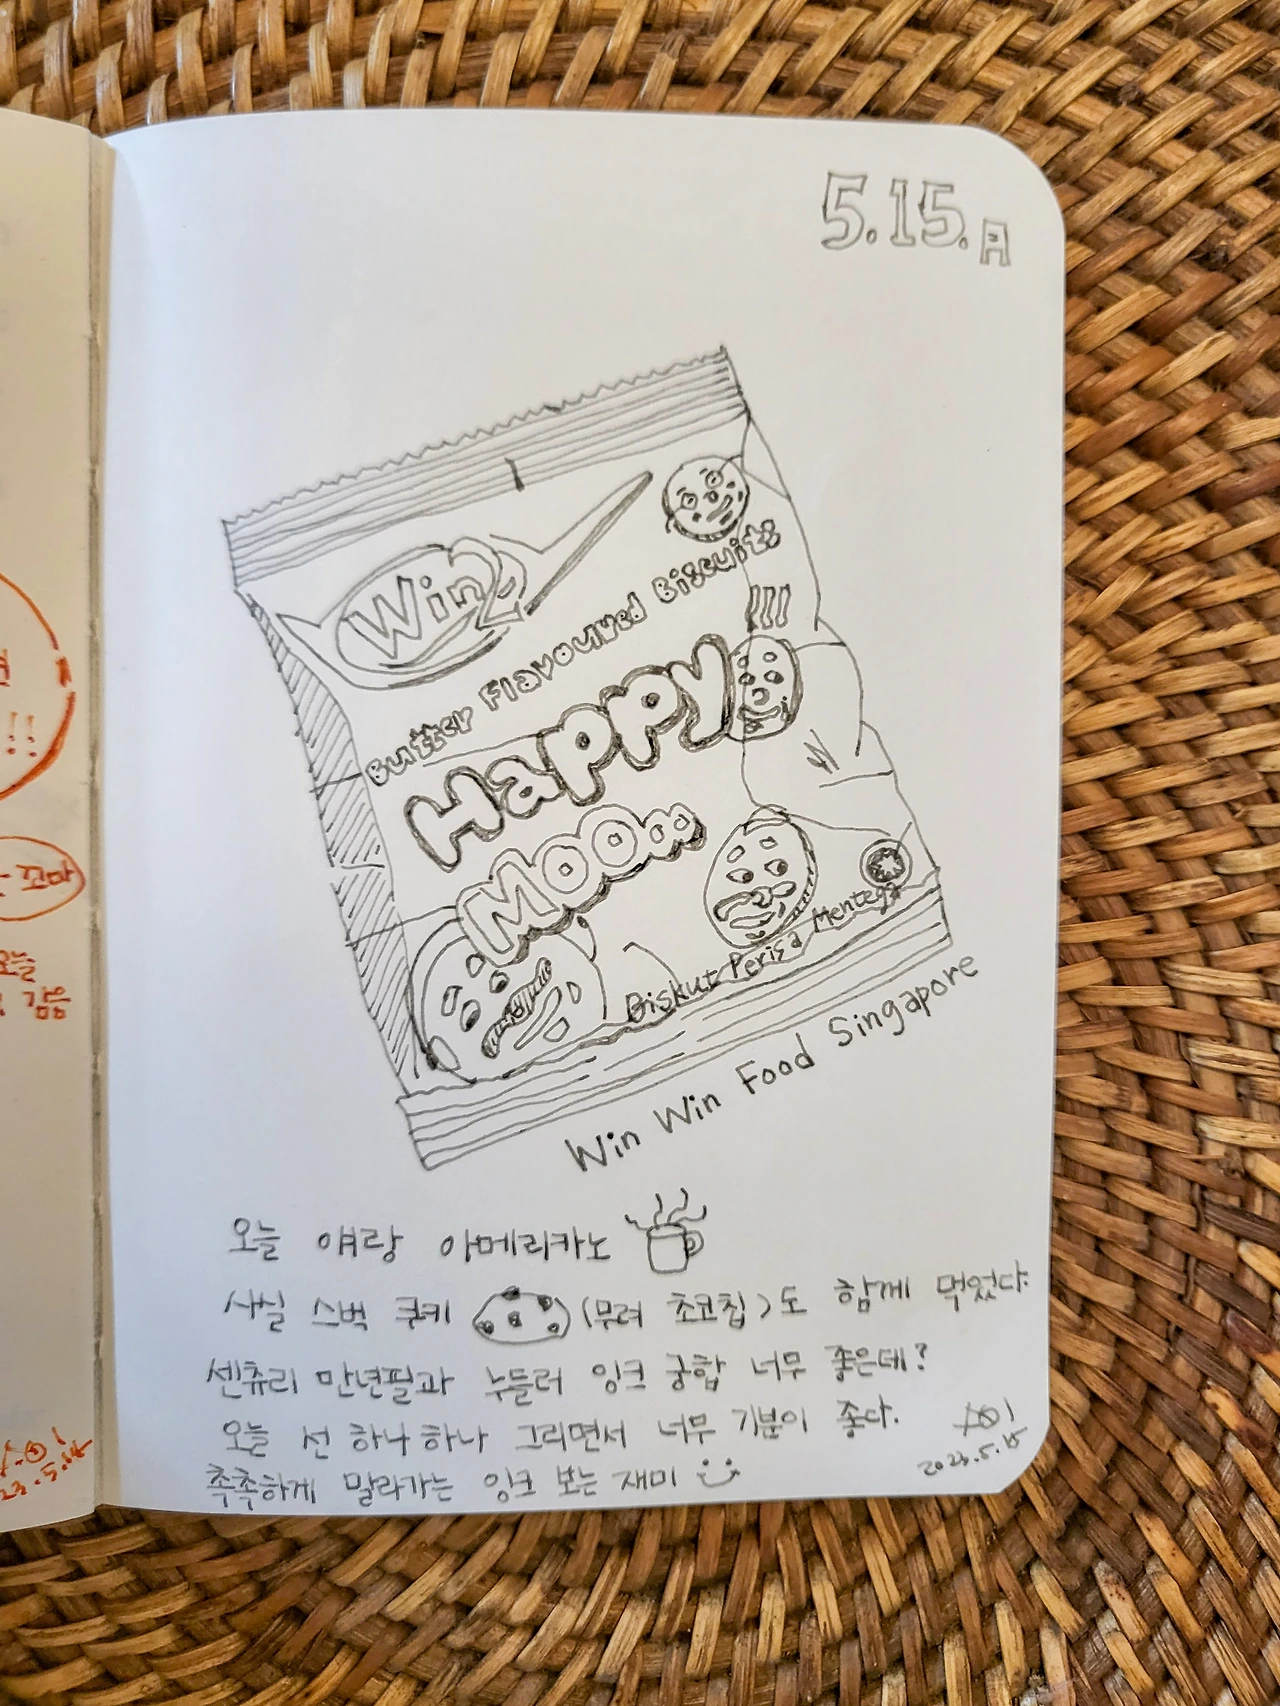 5.15.月
Win2
Butter Flavoured Biscuits
Happy
Mooo
Biskut Perisa Mentega
Win Win Food Singapore
오늘 얘랑 아메리카노
사실 스벅 쿠키 (무려 초코칩)도 함께 먹었다.
센츄리 만년필과 누들러 잉크 궁합 너무 좋은데?
오늘 선 하나하나 그리면서 너무 기분이 좋다.
촉촉하게 말라가는 잉크 보는 재미
2023.5.15
!!
꼬마
오늘